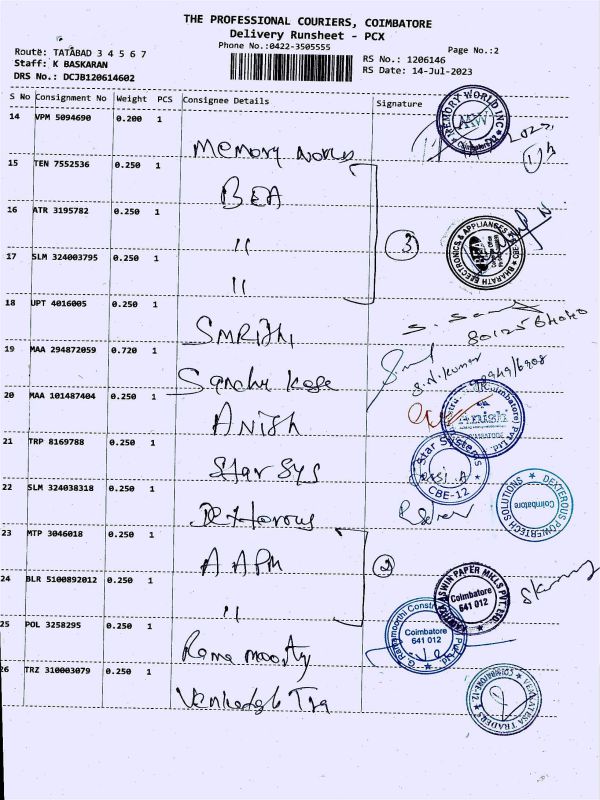 THE PROFESSIONAL COURIERS, COIMBATORE
Delivery Runsheet - PCX
Phone No.:0422-3505555
Page No.:2
Route: TATABAD 3 4 5 6 7
Staff: K BASKARAN
DRS No.: DCJB120614602
RS No.: 1206146
RS Date: 14-Jul-2023
S No Consignment No Weight PCS Consignee Details Signature
14 VPM 5094690 0.200 1
Memory World
MEMORY WORLD INC
15 TEN 7552536 0.250 1
BEA
16 ATR 3195782 0.250 1
"
3
BHARATH ELECTRONICS & APPLIANCES
17 SLM 324003795 0.250 1
"
18 UPT 4016005 0.250 1
SMRITHI
19 MAA 294872059 0.720 1
S.N.Kumar
20 MAA 101487404 0.250 1
ANISH
Anish
21 TRP 8169788 0.250 1
Star Sys
Star Systems
CBE-12
22 SLM 324038318 0.250 1
DEXTEROUS POWERTECH SOLUTIONS
Coimbatore
23 MTP 3046018 0.250 1
AAPM
2
24 BLR 5100892012 0.250 1
"
ASWIN PAPER MILLS PVT. LTD.
Coimbatore
641 012
25 POL 3258295 0.250 1
Rama moorthy
Coimbatore
641 012
26 TRZ 310003079 0.250 1
VENKATESA TRADERS
COIMBATORE-12